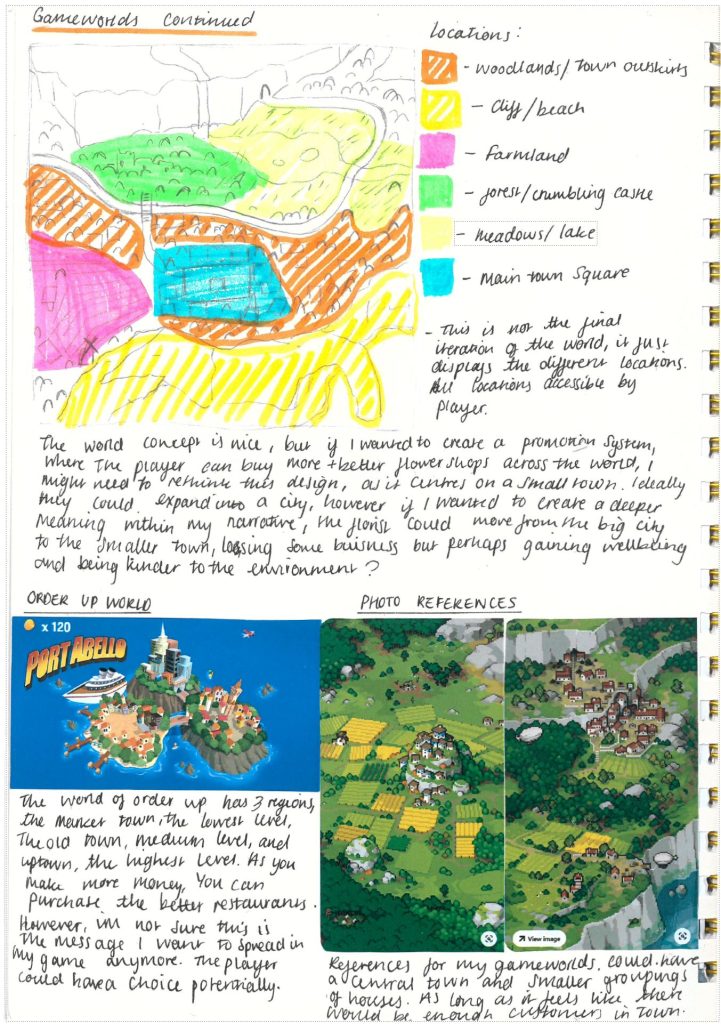 Gameworlds Continued
Locations:
- woodlands/town outskirts
- Cliff/beach
- farmland
- forest/crumbling castle
- meadows/lake
- Main town Square
- This is not the final
iteration of the world, it just
displays the different locations.
All locations accessible by
player.
The world concept is nice, but if I wanted to create a promotion system,
where the player can buy more + better flower shops across the world, I
might need to rethink this design, as it centres on a small town. Ideally
they could expand into a city, however if I wanted to create a deeper
meaning within my narrative, the florist could move from the big city
to the smaller town, lossing some buisness but perhaps gaining wellbeing
and being kinder to the environment?
ORDER UP WORLD
PHOTO REFERENCES
x 120
PORT ABELLO
View image
The world of order up has 3 regions,
the market town, the lowest level,
The old town, medium level, and
uptown, the highest level. As you
make more money, you can
purchase the better restaurants.
However, im not sure this is
the message I want to spread in
my game anymore. The player
could have a choice potentially.
References for my gameworlds. Could have
a central town and smaller groupings
of houses. As long as it feels like there
would be enough customers in town.